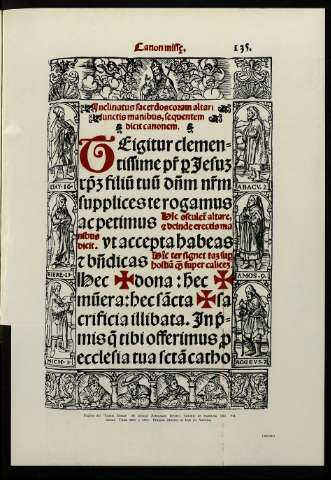 Canon misse.
135.
Inclinatus sacerdos coram altari
iunctis manibus, sequentem
dicit canonem.
TE igitur clemen
tissime pr̃ p Jesuz
xp̃z filiũ tuũ dñm nr̃m
supplices te rogamus
ac petimus Hic osculet̃ altare,
& deinde erectis ma
nibus dicit. vt accepta habeas
& bñdicas Hic ter signet
hostiã q̃ super calicez
Hec ✠ dona: hec ✠
mũera: hec sãcta ✠ sa
crificia illibata. In p̃
mis q̃ tibi offerimus p
ecclesia tua sctã catho
ISAY·16·
ABACV·2
AMOS·9·
MICH·5·
AGGEVS·2